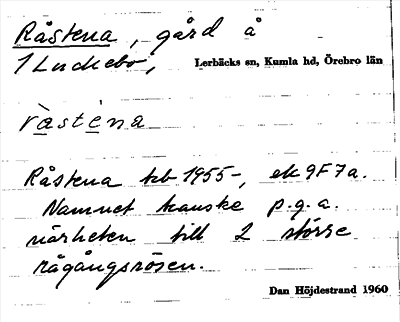 Råstena, gård å
1 Luckebo, Lerbäcks sn, Kumla hd, Örebro län
råsténa
Råstena kb 1955-, ek 9F7a.
Namnet kanske p.g.a.
närheten till 2 större
rågångsrösen.
Dan Höjdestrand 1960